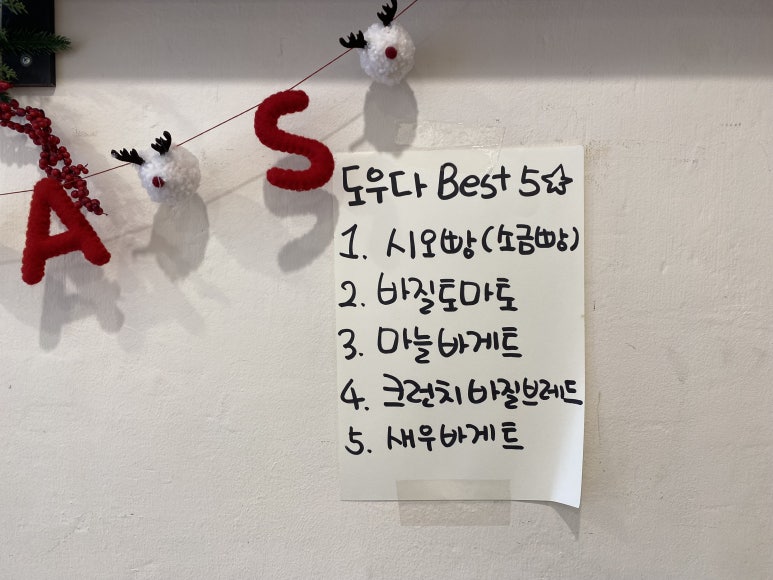 A S
도우다 Best 5☆
1. 시오빵(소금빵)
2. 바질토마토
3. 마늘바게트
4. 크런치바질브레드
5. 새우바게트